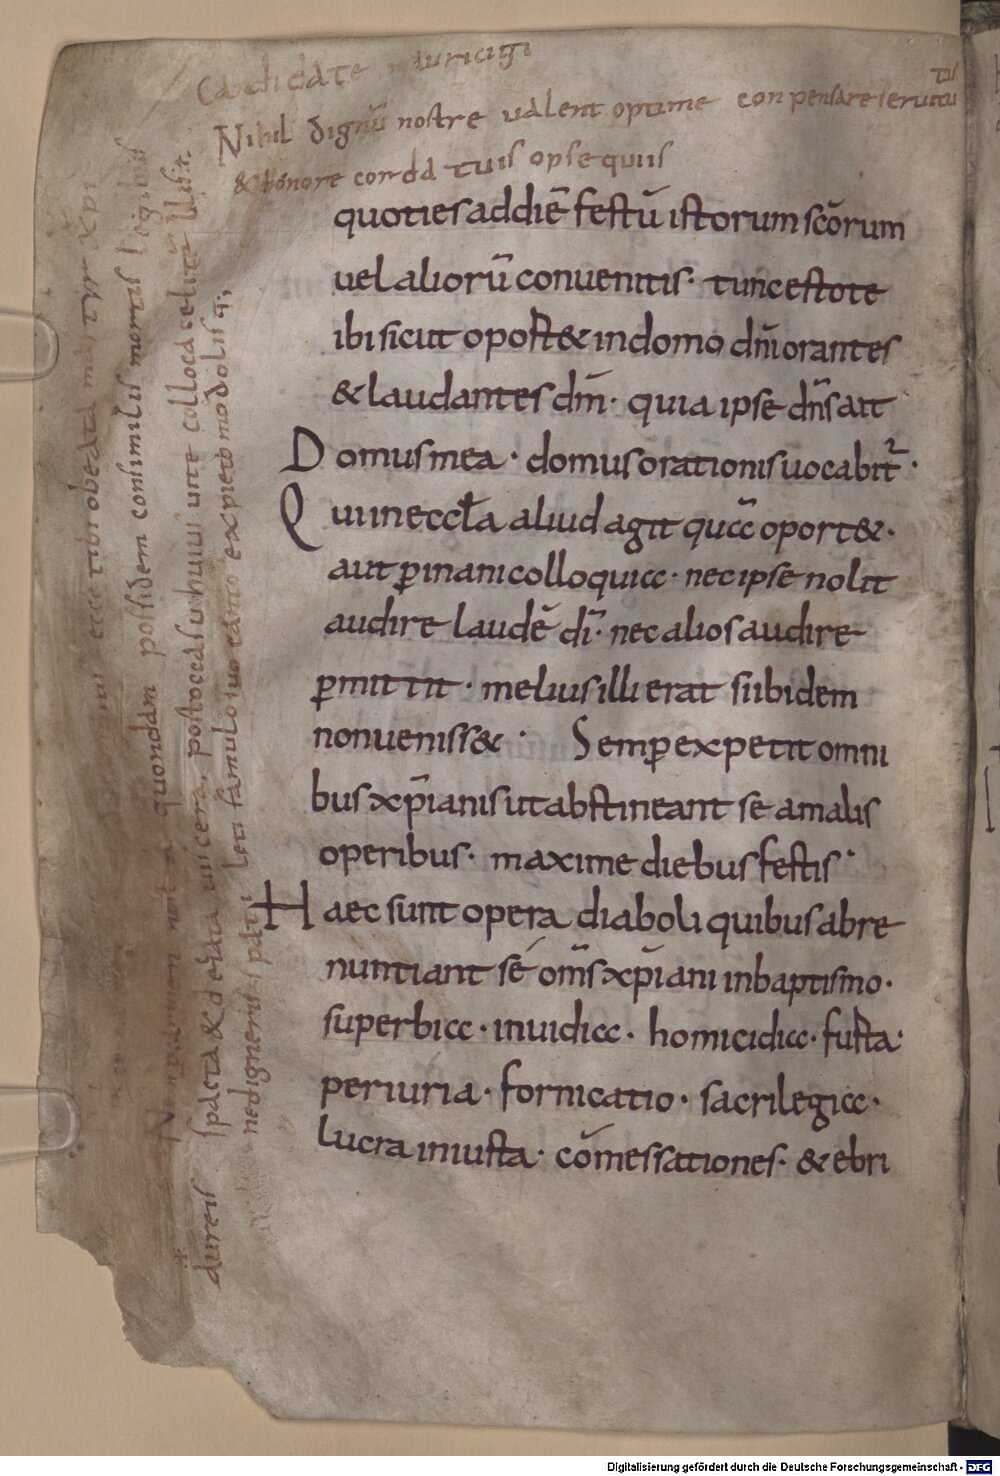 Candidate mauricigi
tui
Nihil dignū nostre valent optime conpensare
& honore corda tuis opsequiis
quoties ad diē festū istorum scōrum
uel aliorū conuenitis · tunc estote
ibi sicut oport& in domo dn̄i orantes
& laudantes dm̄ · quia ipse dn̄s ait
Domus mea · domus orationis uocabit᷑ ·
Qui in eccƚa aliud agit quā oport& ·
aut ꝑ inania colloquia · nec ipse nolit
audire laudē dī · nec alios audire
ꝑmittit · melius illi erat si ibidem
non uenisse& · Semꝑ expetit omni
bus xp̄ianis ut abstineant se a malis
operibus · maxime diebus festis ·
Haec sunt opera diaboli quibus abre
nuntiant sé om̄s xp̄iani in baptismo ·
superbia · inuidia · homicidia · furta ·
periuria · fornicatio · sacrilegia ·
lucra iniusta · cōmessationes · & ebri
ecce tibi obeata martyr xp̄i
quondam possidem consimilis mortis legibus
spaeta & uiscera. postoccasu huius uite colloca celitē
leti famulo tuo expiemodolis q;
ne digneris
aureis
Digitalisierung gefördert durch die Deutsche Forschungsgemeinschaft - DFG